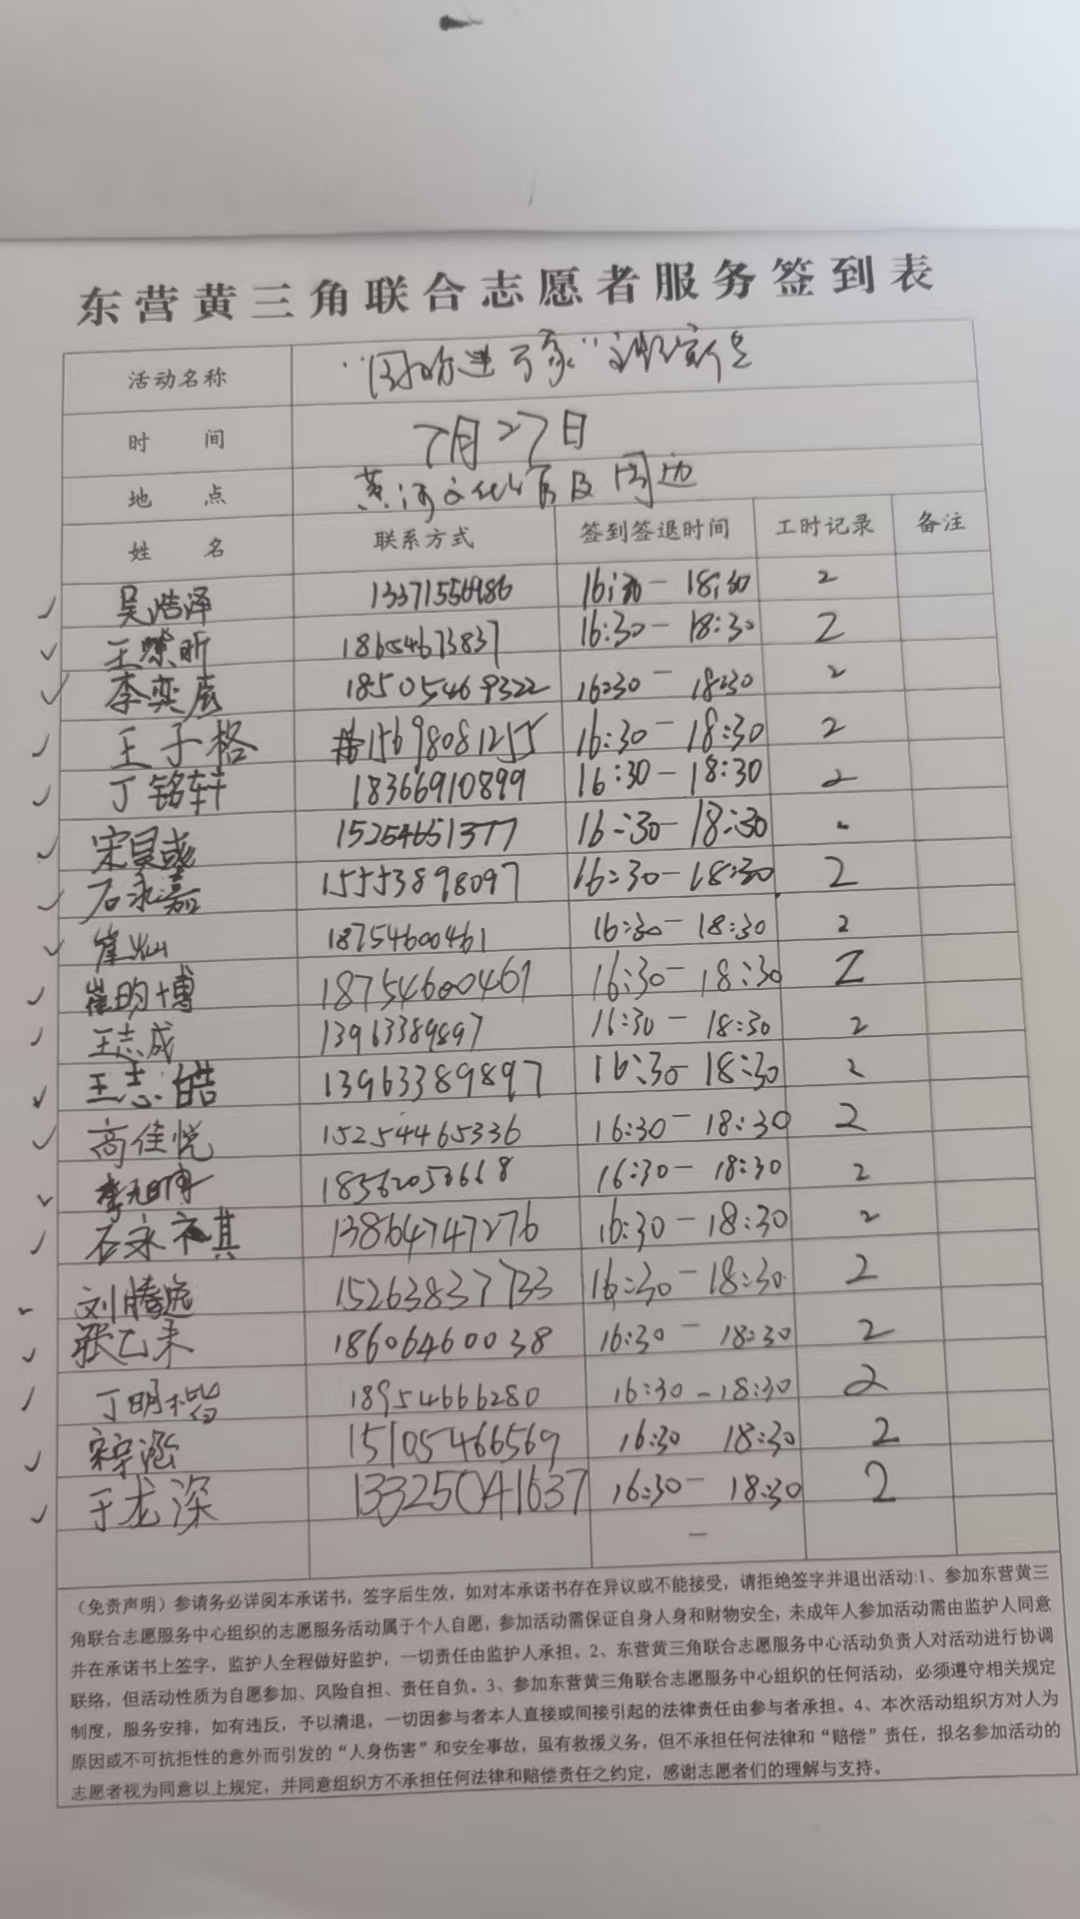 东营黄三角联合志愿者服务签到表
活动名称
时 间 7月27日
地 点 黄河文化馆及周边
姓 名 联系方式 签到签退时间 工时记录 备注
吴浩泽 13371556986 16:30-18:30 2
王 昕 18654673837 16:30-18:30 2
李奕 18505469322 16:30-18:30 2
王子格 15698081255 16:30-18:30 2
丁铭轩 18366910899 16:30-18:30 2
宋 15254651377 16:30-18:30
石永嘉 15553898097 16:30-18:30 2
崔灿 18754600461 16:30-18:30 2
崔昀博 18754600461 16:30-18:30 2
王志成 13963389897 16:30-18:30 2
王志皓 13963389897 16:30-18:30 2
高佳悦 15254465336 16:30-18:30 2
16:30-18:30 2
石永祺 13864747276 16:30-18:30 2
刘腾逸 15263837733 16:30-18:30 2
张乙未 18606460038 16:30-18:30 2
丁明楷 18954666280 16:30-18:30 2
涵 15105466569 16:30 18:30 2
于龙深 13325041637 16:30-18:30 2
（免责声明）参请务必详阅本承诺书，签字后生效，如对本承诺书存在异议或不能接受，请拒绝签字并退出活动:1、参加东营黄三
角联合志愿服务中心组织的志愿服务活动属于个人自愿，参加活动需保证自身人身和财物安全，未成年人参加活动需由监护人同意
并在承诺书上签字，监护人全程做好监护，一切责任由监护人承担。2、东营黄三角联合志愿服务中心活动负责人对活动进行协调
联络，但活动性质为自愿参加、风险自担、责任自负。3、参加东营黄三角联合志愿服务中心组织的任何活动，必须遵守相关规定
制度，服务安排，如有违反，予以清退，一切因参与者本人直接或间接引起的法律责任由参与者承担。4、本次活动组织方对人为
原因或不可抗拒性的意外而引发的“人身伤害”和安全事故，虽有救援义务，但不承担任何法律和“赔偿”责任，报名参加活动的
志愿者视为同意以上规定，并同意组织方不承担任何法律和赔偿责任之约定，感谢志愿者们的理解与支持。